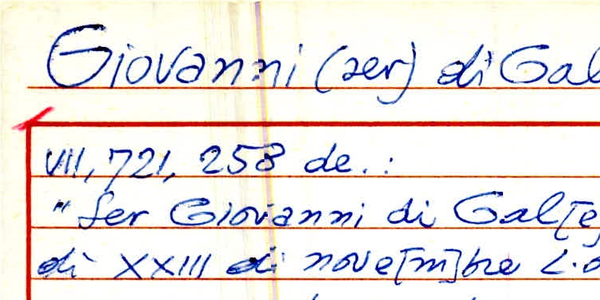 Giovanni (ser) di Gal
VII, 721, 258 de.:
"Ser Giovanni di Gal[e
dì XXIII di nove[m]bre